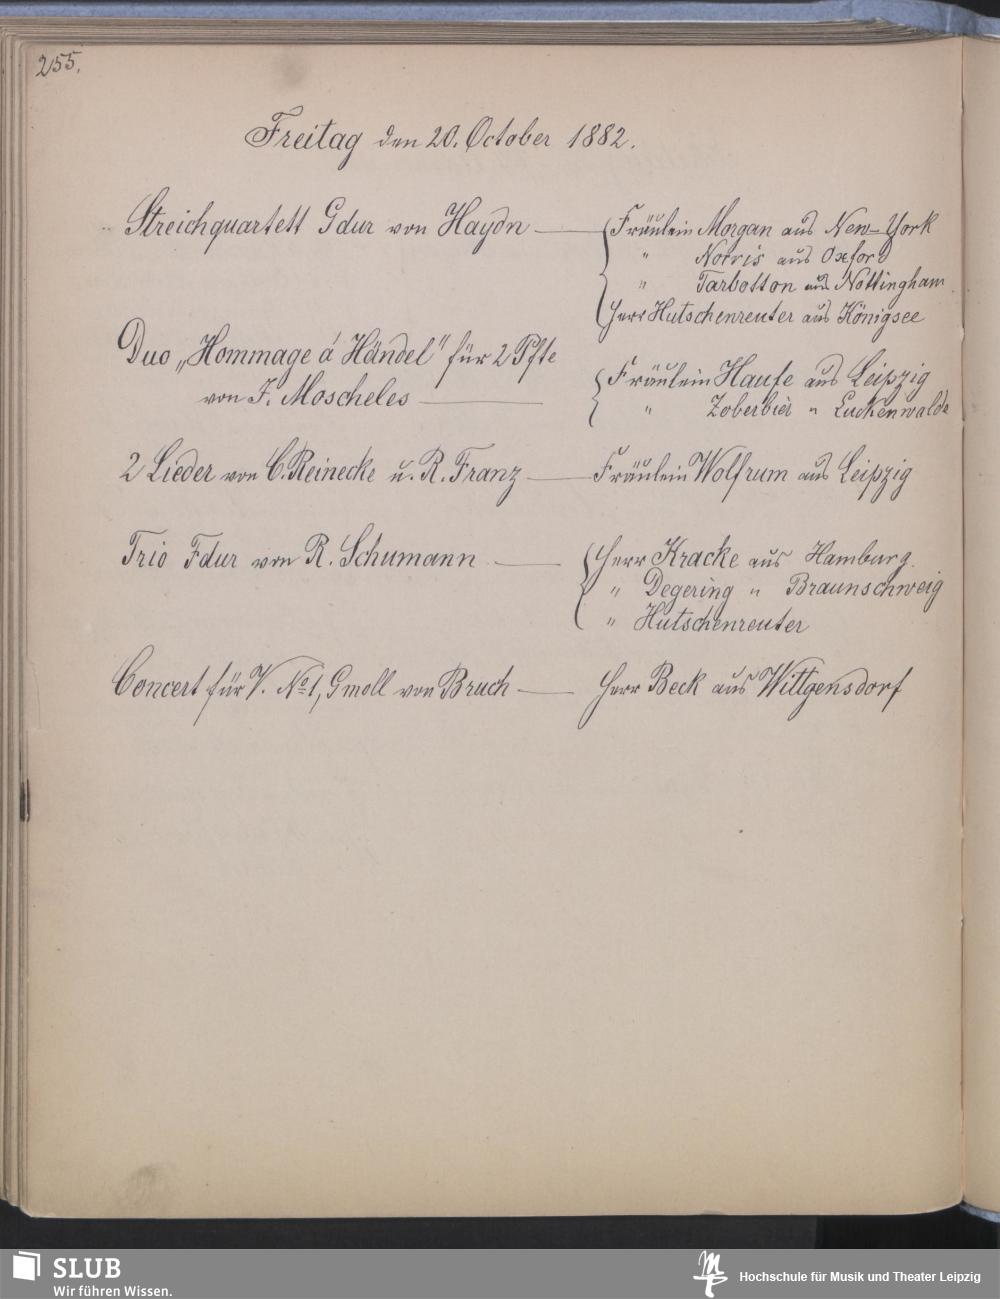 255.
Freitag den 20. October 1882.
Streichquartett Gdur von Haydn — Fräulein Morgan aus New-York
" Norris aus Oxford
" Tarbotton aus Nottingham
Herr Hutschenreuter aus Königsee
Duo „Hommage á Händel" für 2 Pfte
von J. Moscheles — Fräulein Haufe aus Leipzig
" Zoberbier " Luckenwalde
2 Lieder von C. Reinecke u. R. Franz — Fräulein Wolfrum aus Leipzig
Trio Fdur von R. Schumann — Herr Kracke aus Hamburg.
" Degering " Braunschweig
" Hutschenreuter
Concert für V. No 1, Gmoll von Bruch — Herr Beck aus Wittgensdorf
SLUB
Wir führen Wissen.
Hochschule für Musik und Theater Leipzig